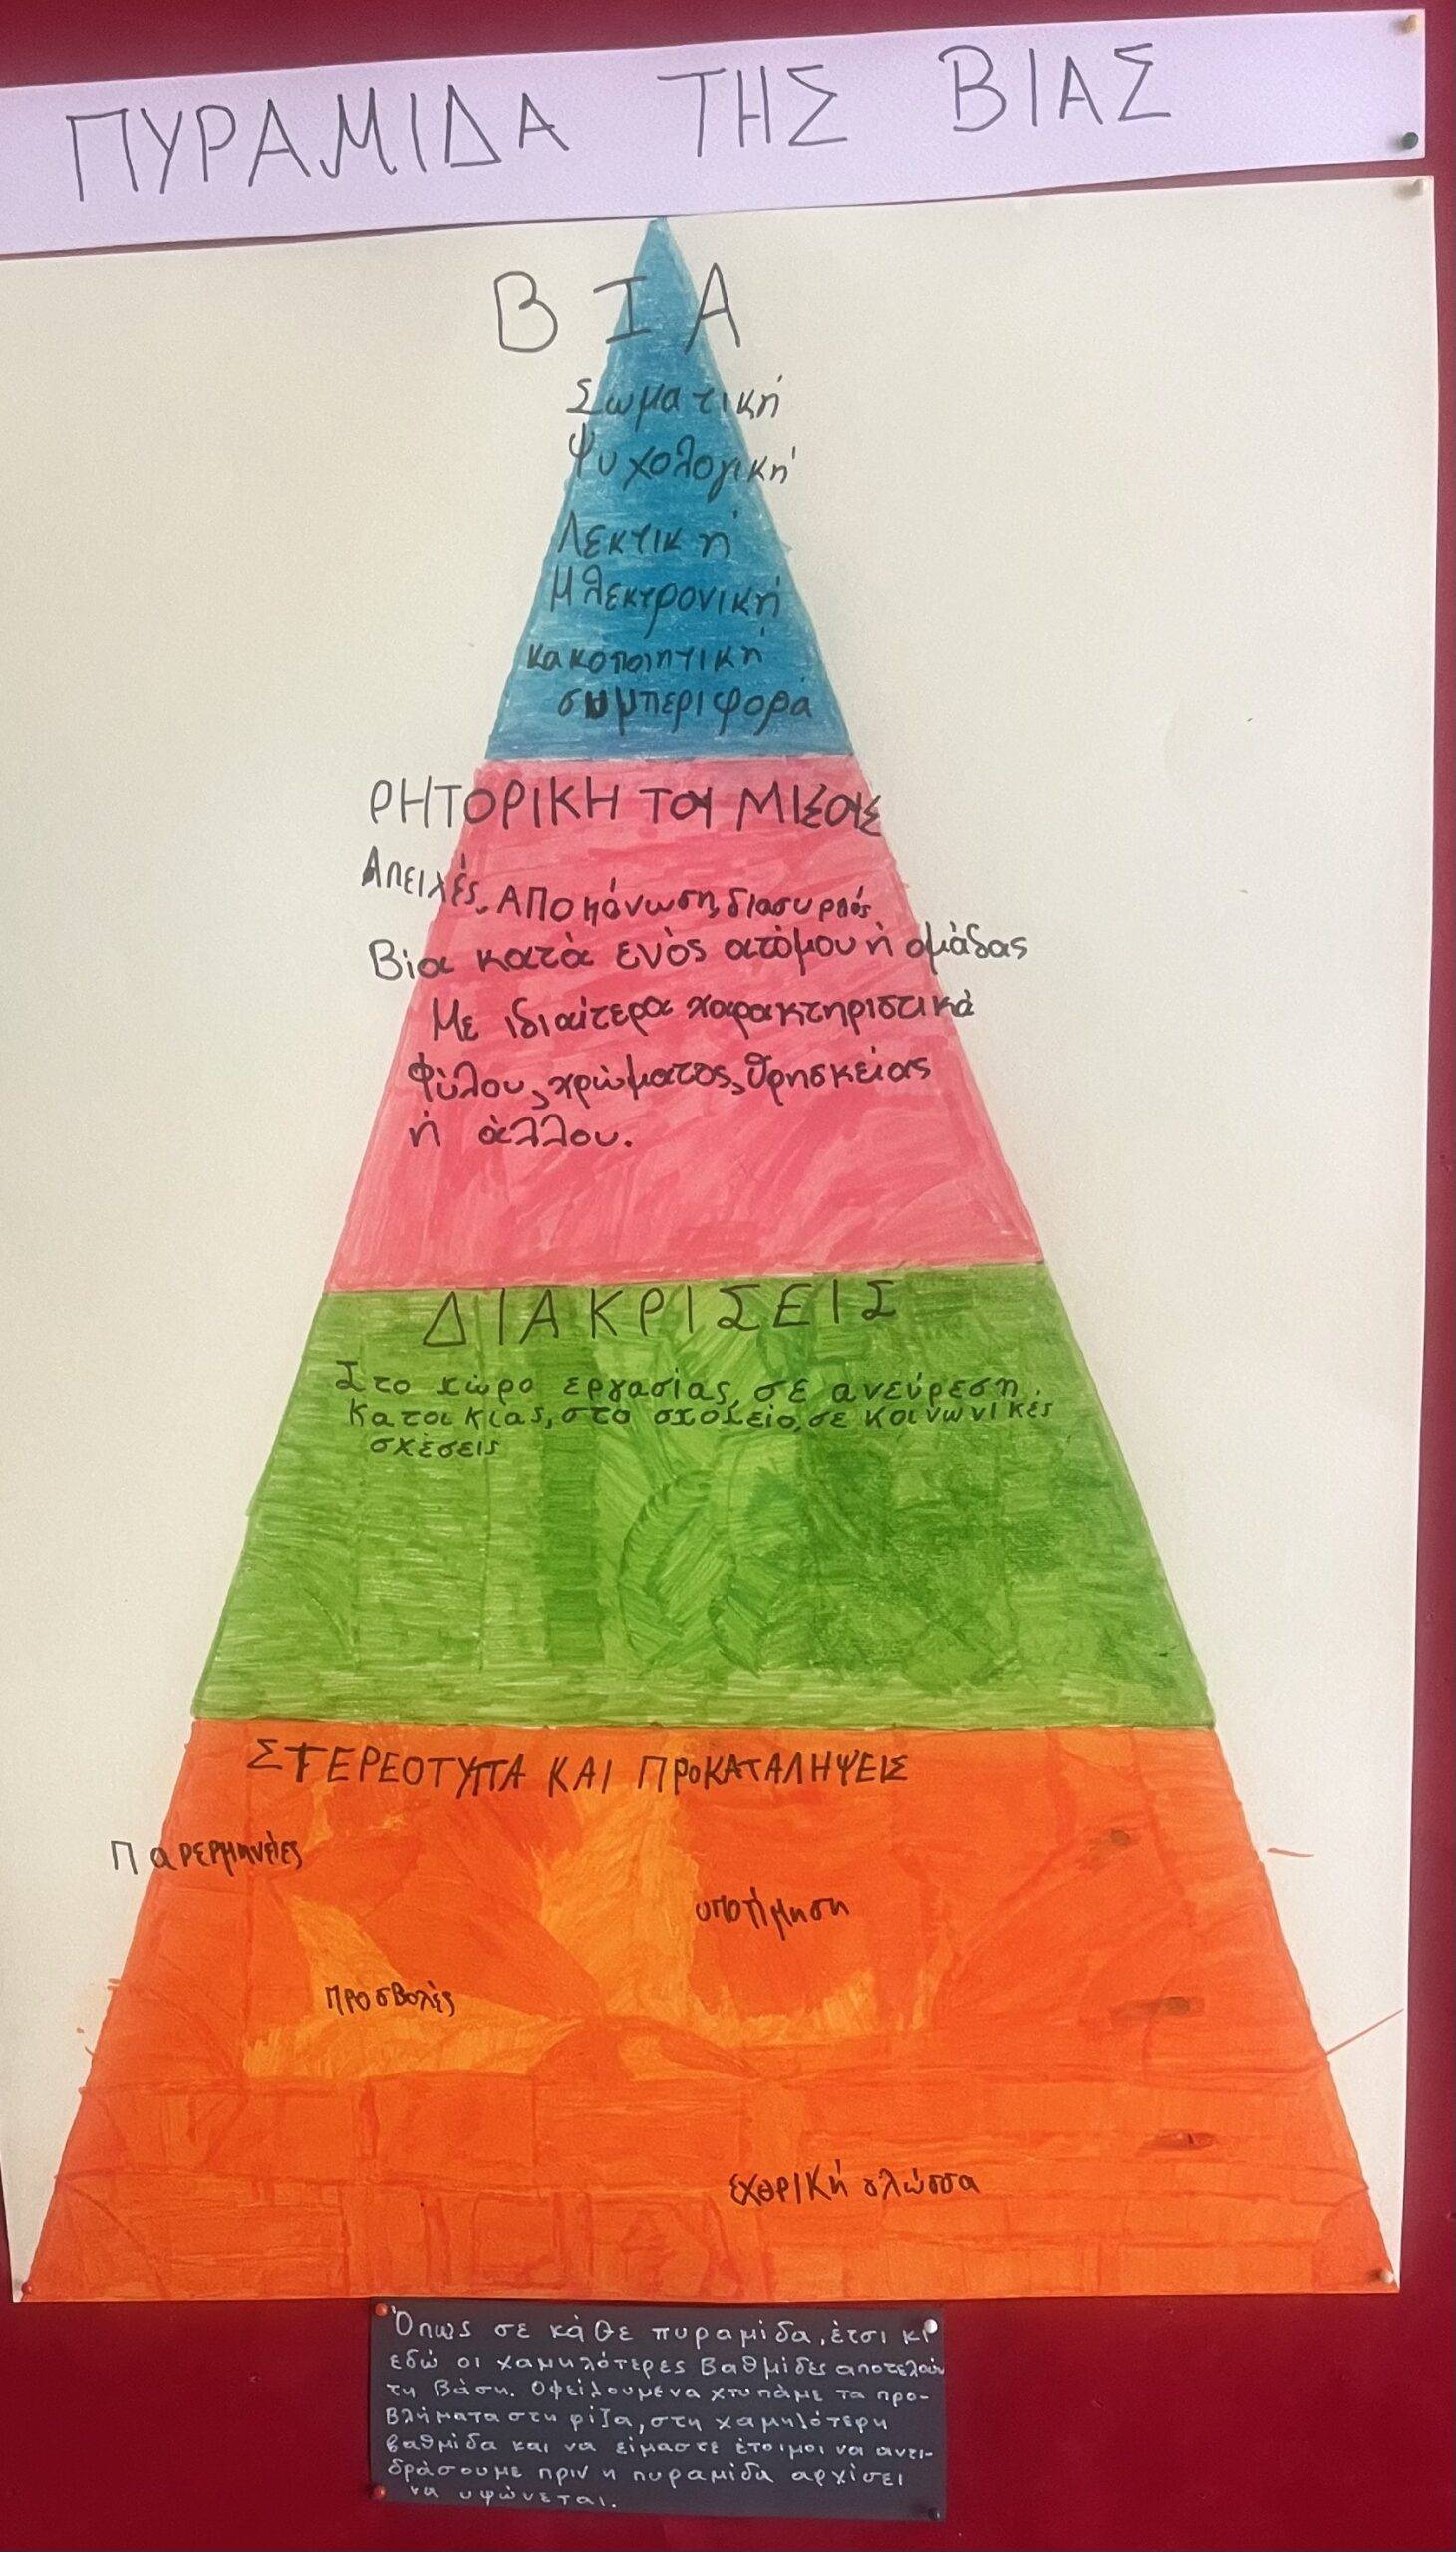 ΠΥΡΑΜΙΔΑ ΤΗΣ ΒΙΑΣ
ΒΙΑ
Σωματική
Ψυχολογική
Λεκτική
Ηλεκτρονική
κακοποιητική
συμπεριφορά
ΡΗΤΟΡΙΚΗ ΤΟΥ ΜΙΣΟΥΣ
Απειλές, Αποκόνωση, διασυρμός
Βία κατά ενός ατόμου ή ομάδας
Με ιδιαίτερα χαρακτηριστικά
Φύλου, χρώματος, θρησκείας
ή άλλου.
ΔΙΑΚΡΙΣΕΙΣ
Στο χώρο εργασίας, σε ανεύρεση
κατοικίας, στο σχολείο, σε κοινωνικές
σχέσεις
ΣΤΕΡΕΟΤΥΠΑ ΚΑΙ ΠΡΟΚΑΤΑΛΗΨΕΙΣ
Παρερμηνείες
υποτίμηση
προσβολές
εχθρική γλώσσα
Όπως σε κάθε πυραμίδα, έτσι κι
εδώ οι χαμηλότερες βαθμίδες αποτελούν
τη βάση. Οφείλουμε να χτυπάμε τα προ-
βλήματα στη ρίζα, στη χαμηλότερη
βαθμίδα και να είμαστε έτοιμοι να αντι-
δράσουμε πριν η πυραμίδα αρχίσει
να υψώνεται.